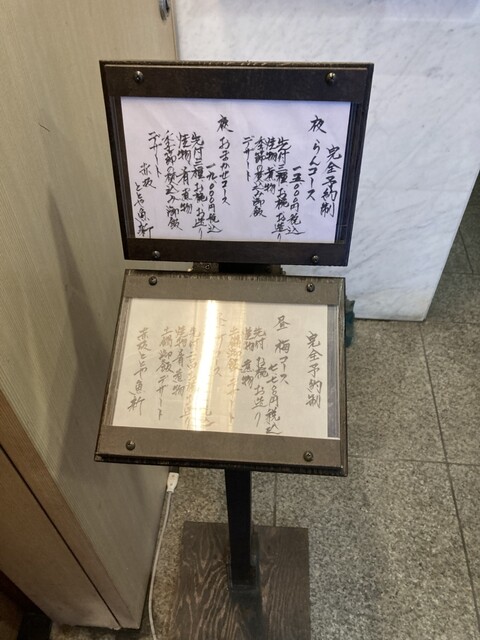 完全予約制
夜 らんコース
一五〇〇〇円税込
先付三種 お椀 お造り
焼物 肴 煮物
季節の炊込み御飯
デザート
夜 おまかせコース
一九〇〇〇円税込
先付三種 お椀 お造り
焼物 肴 煮物
季節の炊込み御飯
デザート
赤坂 とゝや魚新
完全予約制
昼 梅コース
七七〇〇円税込
先付 お椀 お造り
焼物 煮物
土鍋御飯 デザート
コース
税込
お造り
焼物 肴 煮物
土鍋御飯 デザート
赤坂とゝや魚新